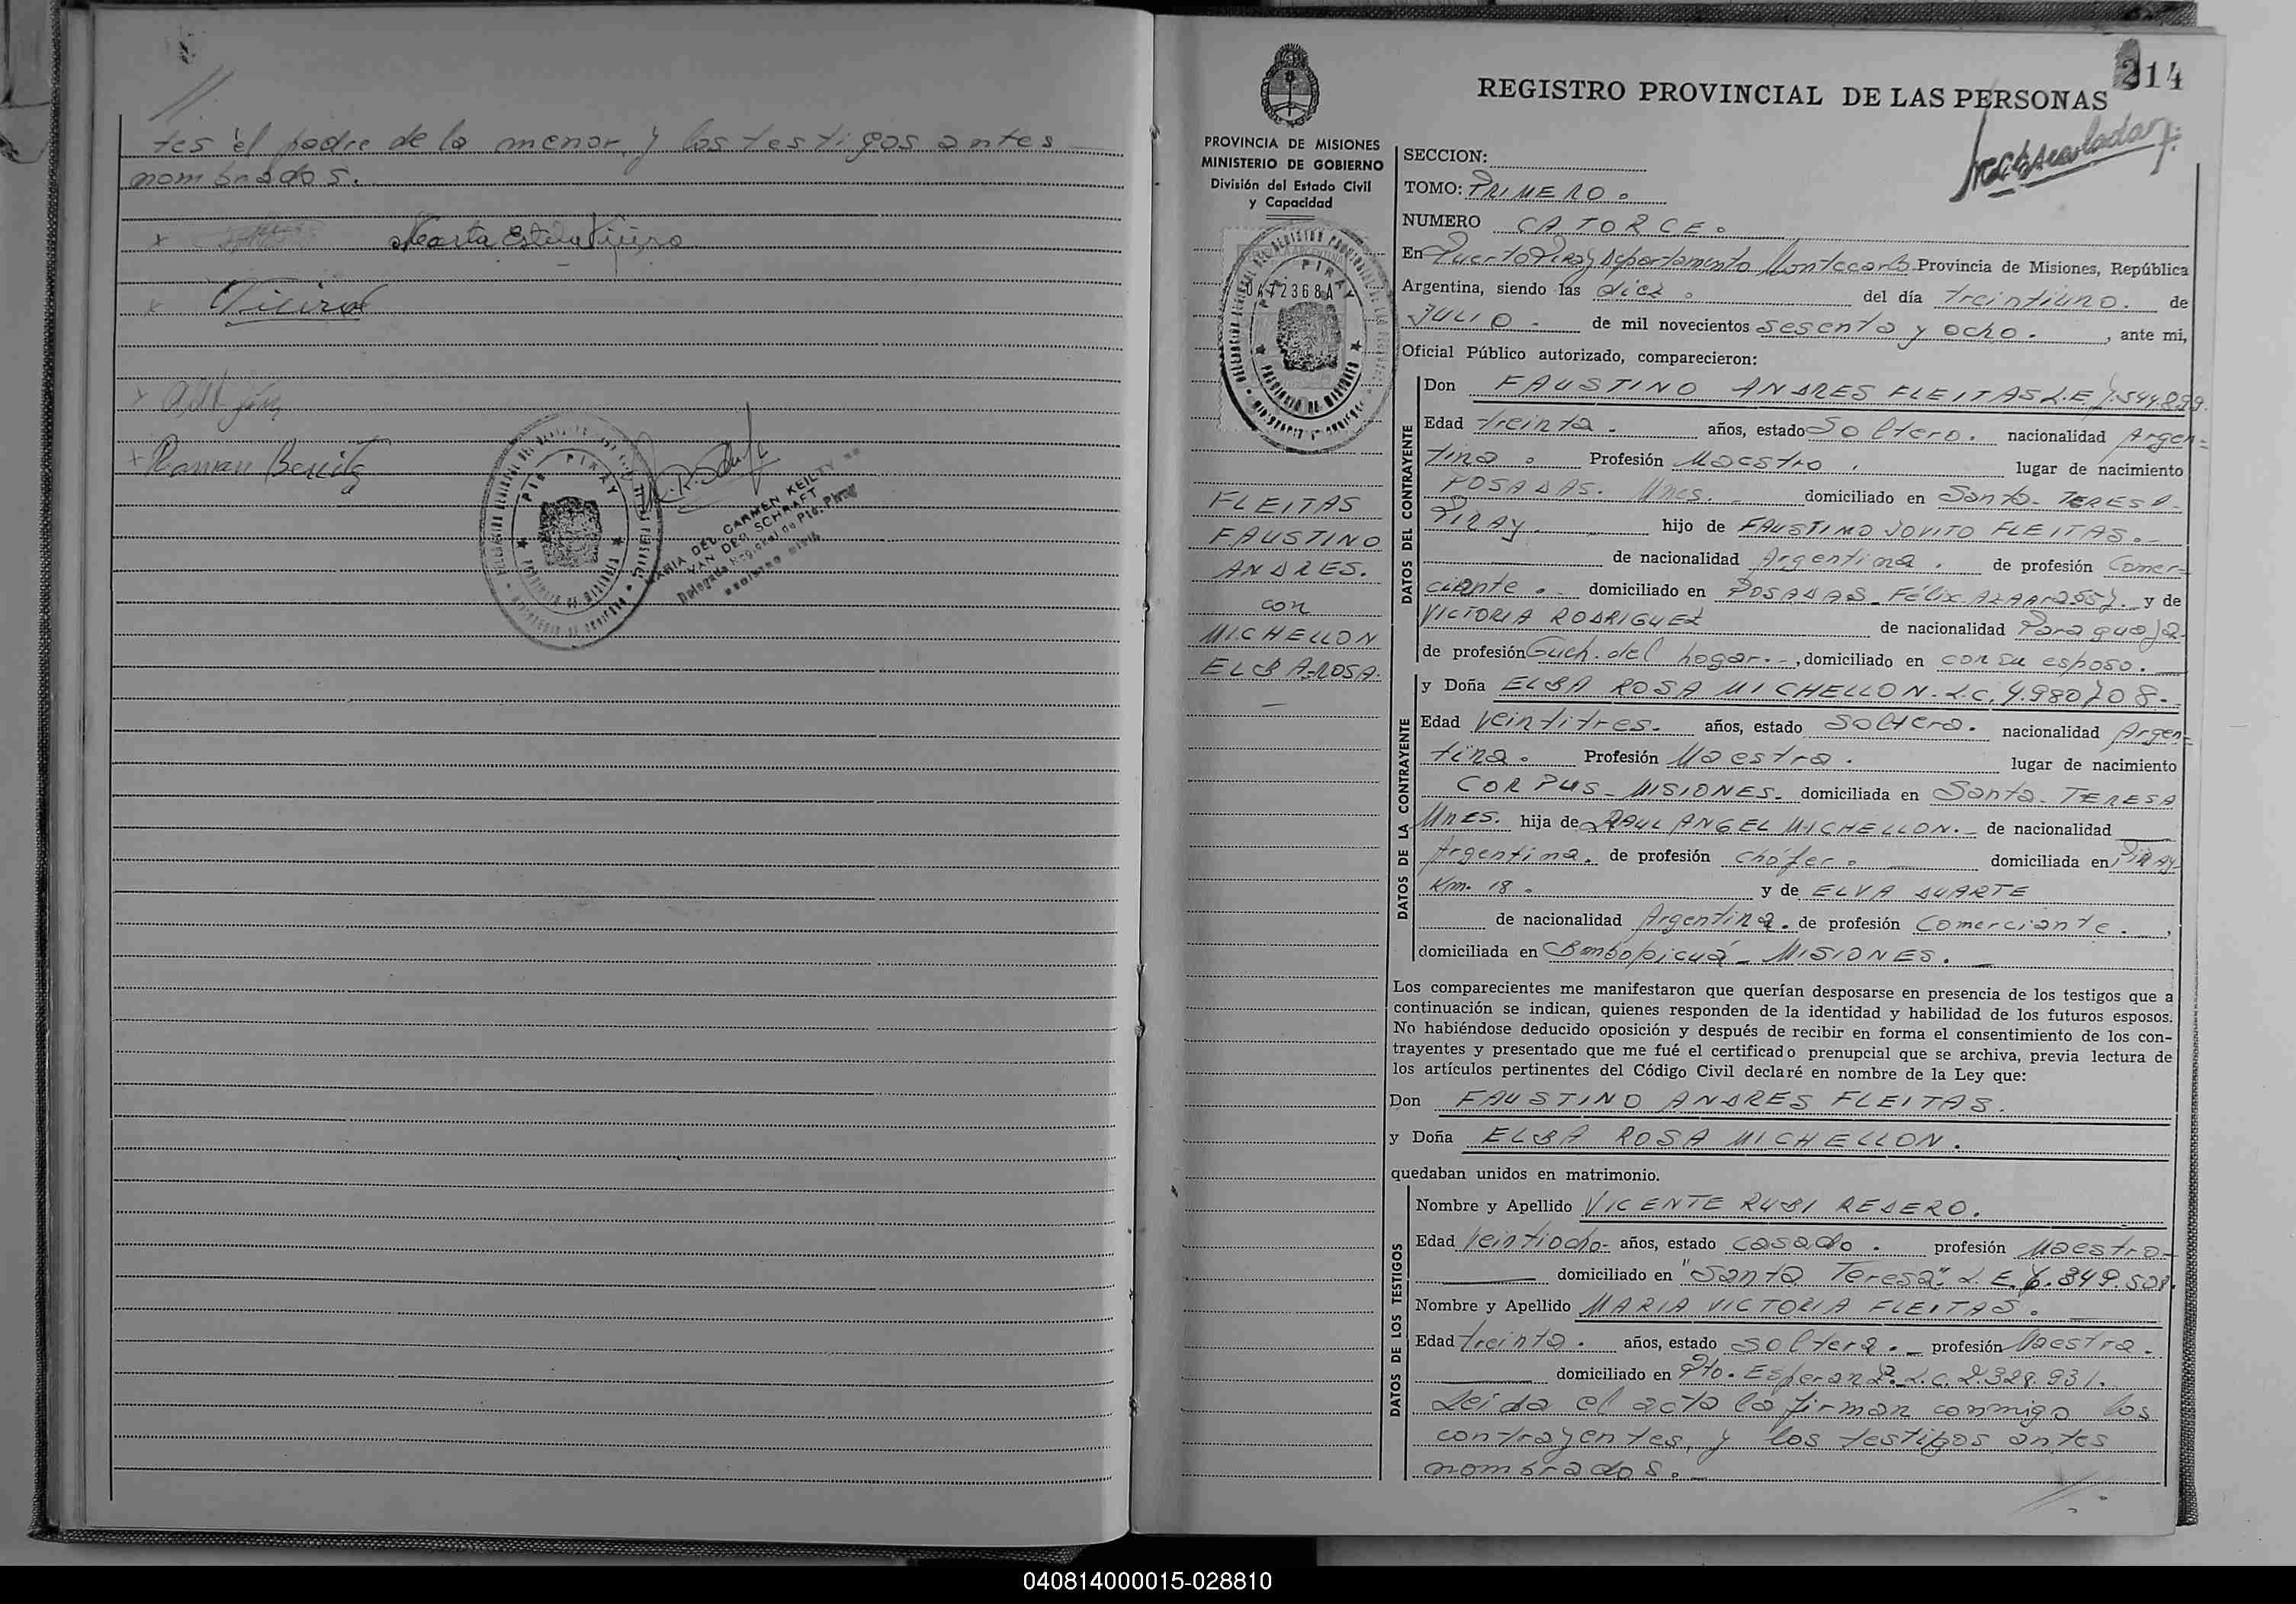 tes el padre de la menor, y los testigos antes
nombrados.
Marta Estela Vieira
Vieira
Ramon Benitez
PIRAY
MARIA DEL CARMEN KEILTY
VAN DER SCHRAFT
Delegada Regional de Pto. Piray
214
REGISTRO PROVINCIAL DE LAS PERSONAS
PROVINCIA DE MISIONES
MINISTERIO DE GOBIERNO
División del Estado Civil
y Capacidad
0472368A
PIRAY
FLEITAS
FAUSTINO
ANDRES.
con
MICHELLON
ELBA ROSA.
SECCION:
TOMO: PRIMERO.
NUMERO CATORCE.
En Puerto Piray Departamento Montecarlo Provincia de Misiones, República
Argentina, siendo las diez. del día treintiuno. de
JULIO. de mil novecientos sesenta y ocho. , ante mi,
Oficial Público autorizado, comparecieron:
DATOS DEL CONTRAYENTE
Don FAUSTINO ANDRES FLEITAS L.E 7.544.899.
Edad treinta. años, estado Soltero. nacionalidad Argen=
tina. Profesión Maestro. lugar de nacimiento
POSADAS. Mnes. domiciliado en Santa TERESA-
PIRAY. hijo de FAUSTINO JOVITO FLEITAS.-
de nacionalidad Argentina. de profesión Comer-
ciante. domiciliado en POSADAS- Félix AZARA 2557. y de
VICTORIA RODRIGUEZ de nacionalidad Paraguaya
de profesión Queh. del hogar.-, domiciliado en con su esposo.
DATOS DE LA CONTRAYENTE
y Doña ELBA ROSA MICHELLON. L.C. 4.980708-
Edad veintitres. años, estado soltera. nacionalidad Argen=
tina. Profesión Maestra. lugar de nacimiento
CORPUS- MISIONES. domiciliada en Santa TERESA
Mnes. hija de RAUL ANGEL MICHELLON.- de nacionalidad
Argentina. de profesión chófer. domiciliada en PIRAY
Km. 18. y de ELVA DUARTE
de nacionalidad Argentina. de profesión Comerciante. ,
domiciliada en Bambopicuá- MISIONES.
Los comparecientes me manifestaron que querían desposarse en presencia de los testigos que a
continuación se indican, quienes responden de la identidad y habilidad de los futuros esposos.
No habiéndose deducido oposición y después de recibir en forma el consentimiento de los con-
trayentes y presentado que me fué el certificado prenupcial que se archiva, previa lectura de
los artículos pertinentes del Código Civil declaré en nombre de la Ley que:
Don FAUSTINO ANDRES FLEITAS.
y Doña ELBA ROSA MICHELLON.
quedaban unidos en matrimonio.
DATOS DE LOS TESTIGOS
Nombre y Apellido VICENTE RUBI REDERO.
Edad veintiocho- años, estado casado. profesión Maestro-
domiciliado en "Santa Teresa". L.E. 7.849.508.
Nombre y Apellido MARIA VICTORIA FLEITAS.
Edad treinta. años, estado soltera.- profesión Maestra.
domiciliado en Pto. Esperanza. L.C. 2.328.931.
Leida el acta la firman conmigo los
contrayentes, y los testigos antes
nombrados.-
040814000015-028810